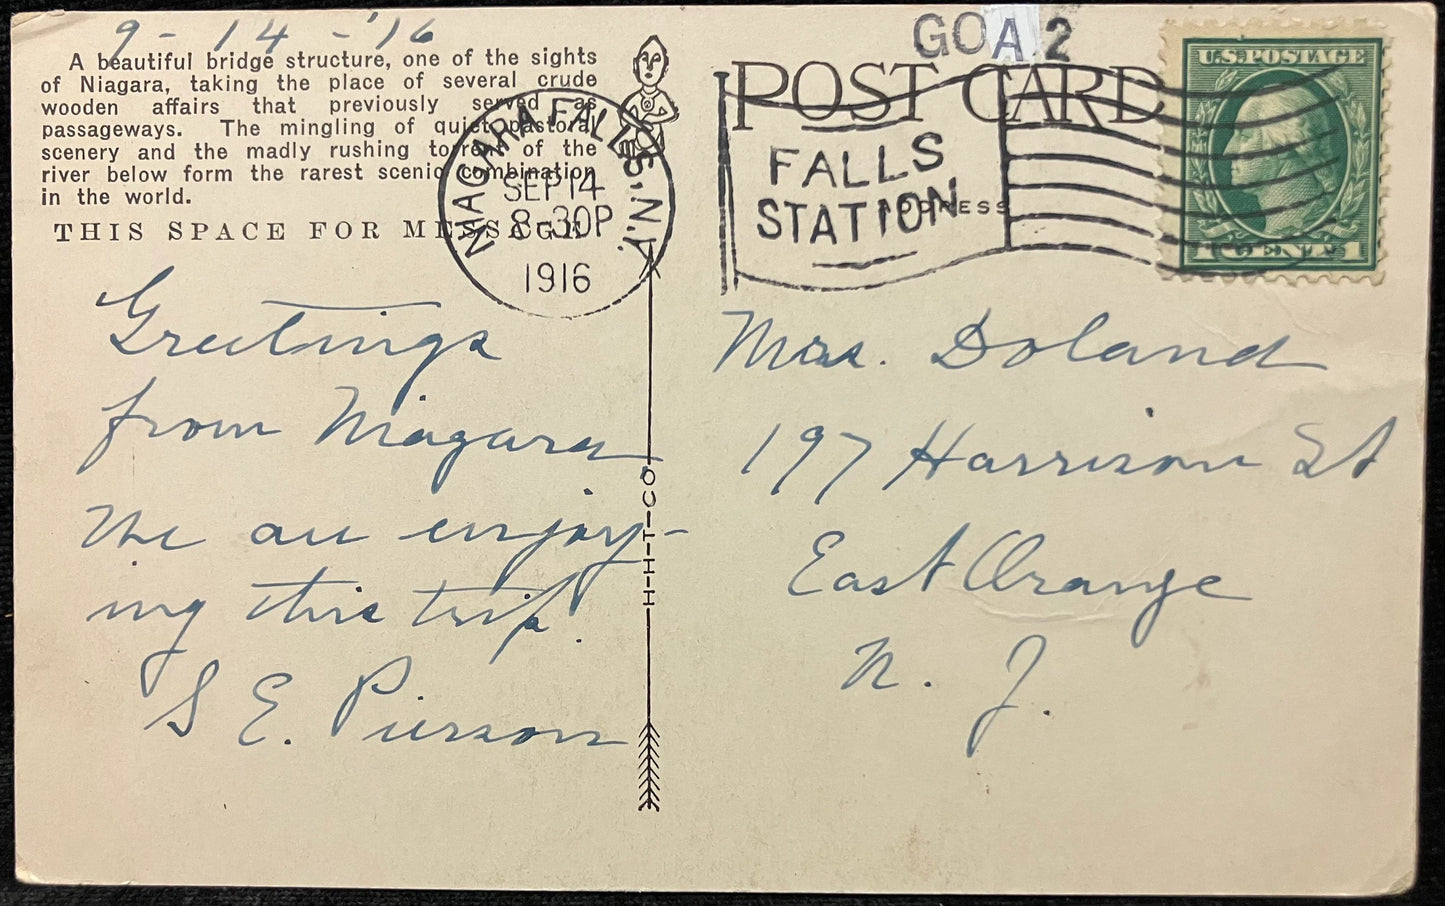 9 - 14 - '16
A beautiful bridge structure, one of the sights
of Niagara, taking the place of several crude
wooden affairs that previously served as
passageways. The mingling of quiet pastoral
scenery and the madly rushing torrent of the
river below form the rarest scenic combination
in the world.
THIS SPACE FOR MESSAGE
NIAGARA FALLS, N.Y.
SEP 14
8-30P
1916
Greetings
from Niagara
We are enjoy-
ing this trip.
S E. Pierson
H-H-T-CO
GOA 2
POST CARD
FALLS
STATION
ADDRESS
U.S. POSTAGE
1 CENT 1
Mrs. Doland
197 Harrison St
East Orange
N. J.